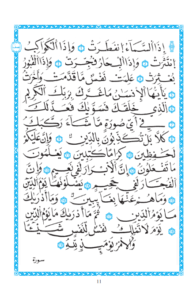 إِذَا السَّمَاءُ انْفَطَرَتْ وَإِذَا الْكَوَاكِبُ
انْتَثَرَتْ وَإِذَا الْبِحَارُ فُجِّرَتْ وَإِذَا الْقُبُورُ
بُعْثِرَتْ عَلِمَتْ نَفْسٌ مَا قَدَّمَتْ وَأَخَّرَتْ
يَٰأَيُّهَا الْإِنْسَٰنُ مَا غَرَّكَ بِرَبِّكَ الْكَرِيمِ
الَّذِي خَلَقَكَ فَسَوَّىٰكَ فَعَدَلَكَ
فِي أَيِّ صُورَةٍ مَا شَاءَ رَكَّبَكَ
كَلَّا بَلْ تُكَذِّبُونَ بِالدِّينِ وَإِنَّ عَلَيْكُمْ
لَحَٰفِظِينَ كِرَامًا كَٰتِبِينَ يَعْلَمُونَ
مَا تَفْعَلُونَ إِنَّ الْأَبْرَارَ لَفِي نَعِيمٍ وَإِنَّ
الْفُجَّارَ لَفِي جَحِيمٍ يَصْلَوْنَهَا يَوْمَ الدِّينِ
وَمَا هُمْ عَنْهَا بِغَائِبِينَ وَمَا أَدْرَىٰكَ
مَا يَوْمُ الدِّينِ ثُمَّ مَا أَدْرَىٰكَ مَا يَوْمُ الدِّينِ
يَوْمَ لَا تَمْلِكُ نَفْسٌ لِنَفْسٍ شَيْئًا
وَالْأَمْرُ يَوْمَئِذٍ لِلَّهِ
سورة